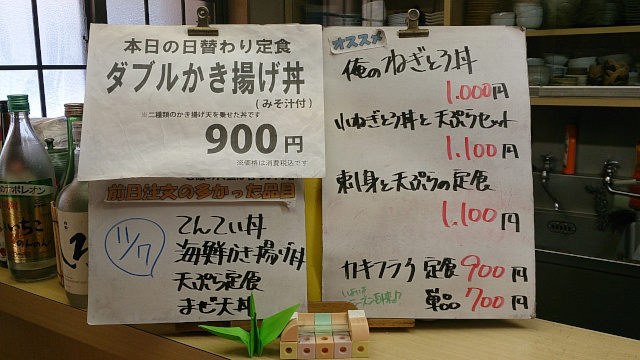 本日の日替わり定食
ダブルかき揚げ丼
(みそ汁付)
※二種類のかき揚げ天を乗せた丼です
900円
※価格は消費税込です
前日注文の多かった品目
11/7
てんてい丼
海鮮かき揚げ丼
天ぷら定食
まぜ天丼
オススメ
俺のねぎとろ丼
1.000円
小ねぎとろ丼と天ぷらセット
1.100円
刺身と天ぷらの定食
1.100円
カキフライ定食900円
単品700円
ナポレオン
いいちこ